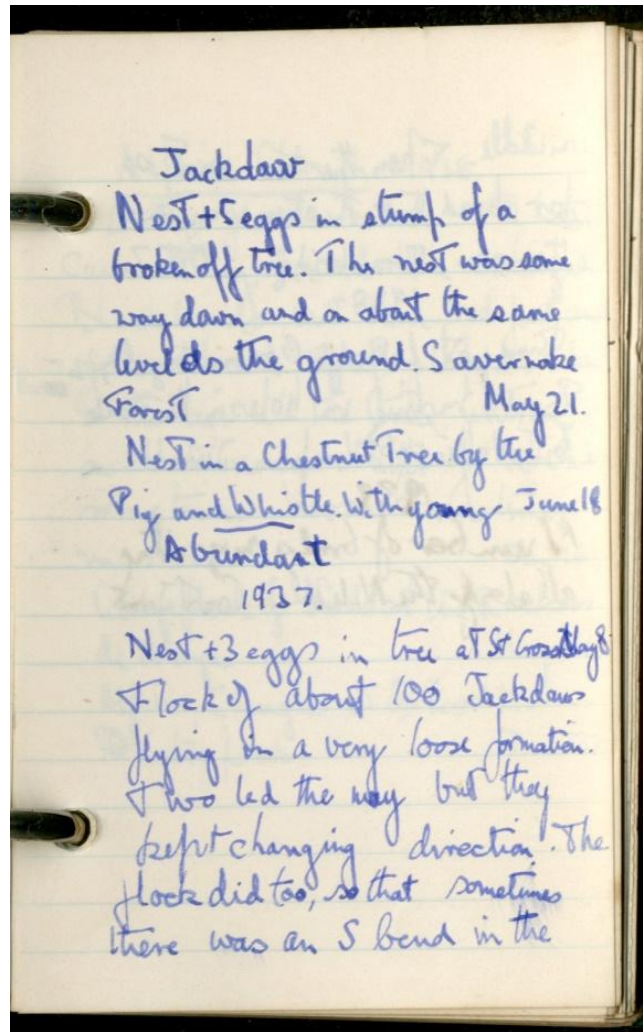 Jackdaw
Nest + 5 eggs in stump of a
broken off tree. The nest was some
way down and on about the same
level as the ground. Savernake
Forest May 21.
Nest in a Chestnut Tree by the
Pig and Whistle. With young June 18
Abundant
1937.
Nest + 3 eggs in tree at St Cross May 8
Flock of about 100 Jackdaws
flying in a very loose formation.
Two led the way but they
kept changing direction. The
flock did too, so that sometimes
there was an S bend in the